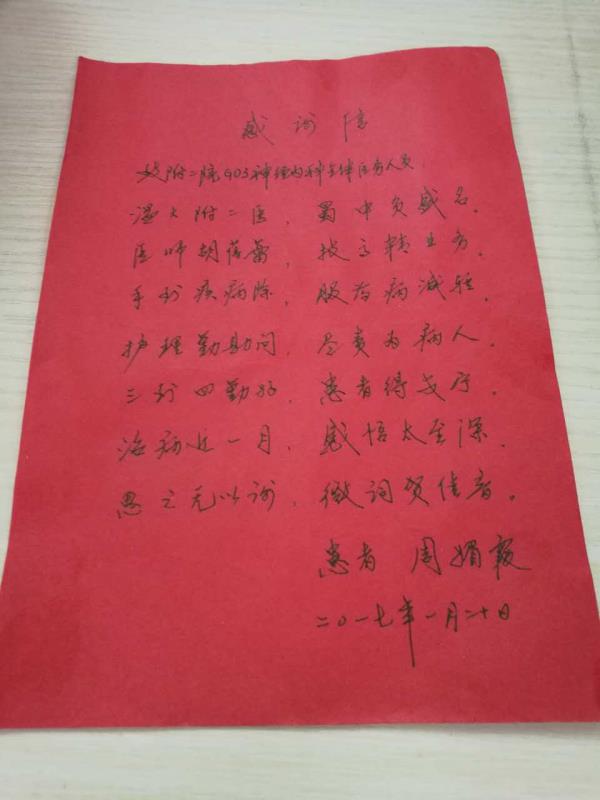 感谢信
致附二院903神经内科全体医务人员
温大附二医，蜀中负盛名。
医师胡蓓蕾，技高精业务。
手到疾病除，服药病减轻。
护理勤助问，尽责为病人。
三到四勤好，患者得安宁。
治病近一月，感悟太至深。
思之无以谢，微词贺佳音。
患者 周媚
二〇一七年一月二十日